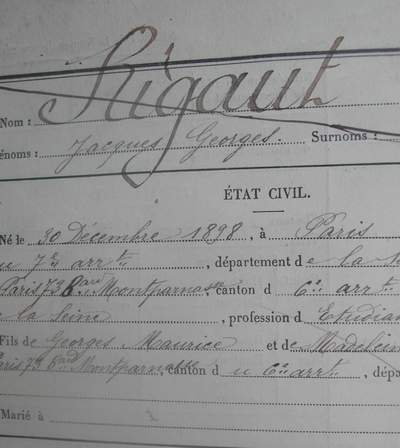 Nom : Rigaut
énoms : Jacques Georges. Surnoms :
ÉTAT CIVIL.
Né le 30 Décembre 1898, à Paris
u 7e arrt, département de la S
Paris 73 Bard Montparnasse, canton d 6e arrt
e la Seine, profession d Etudian
Fils de Georges Maurice et de Madelein
Paris 73 Bard Montparnasse, canton d u 6e arrt, dépa
Marié à